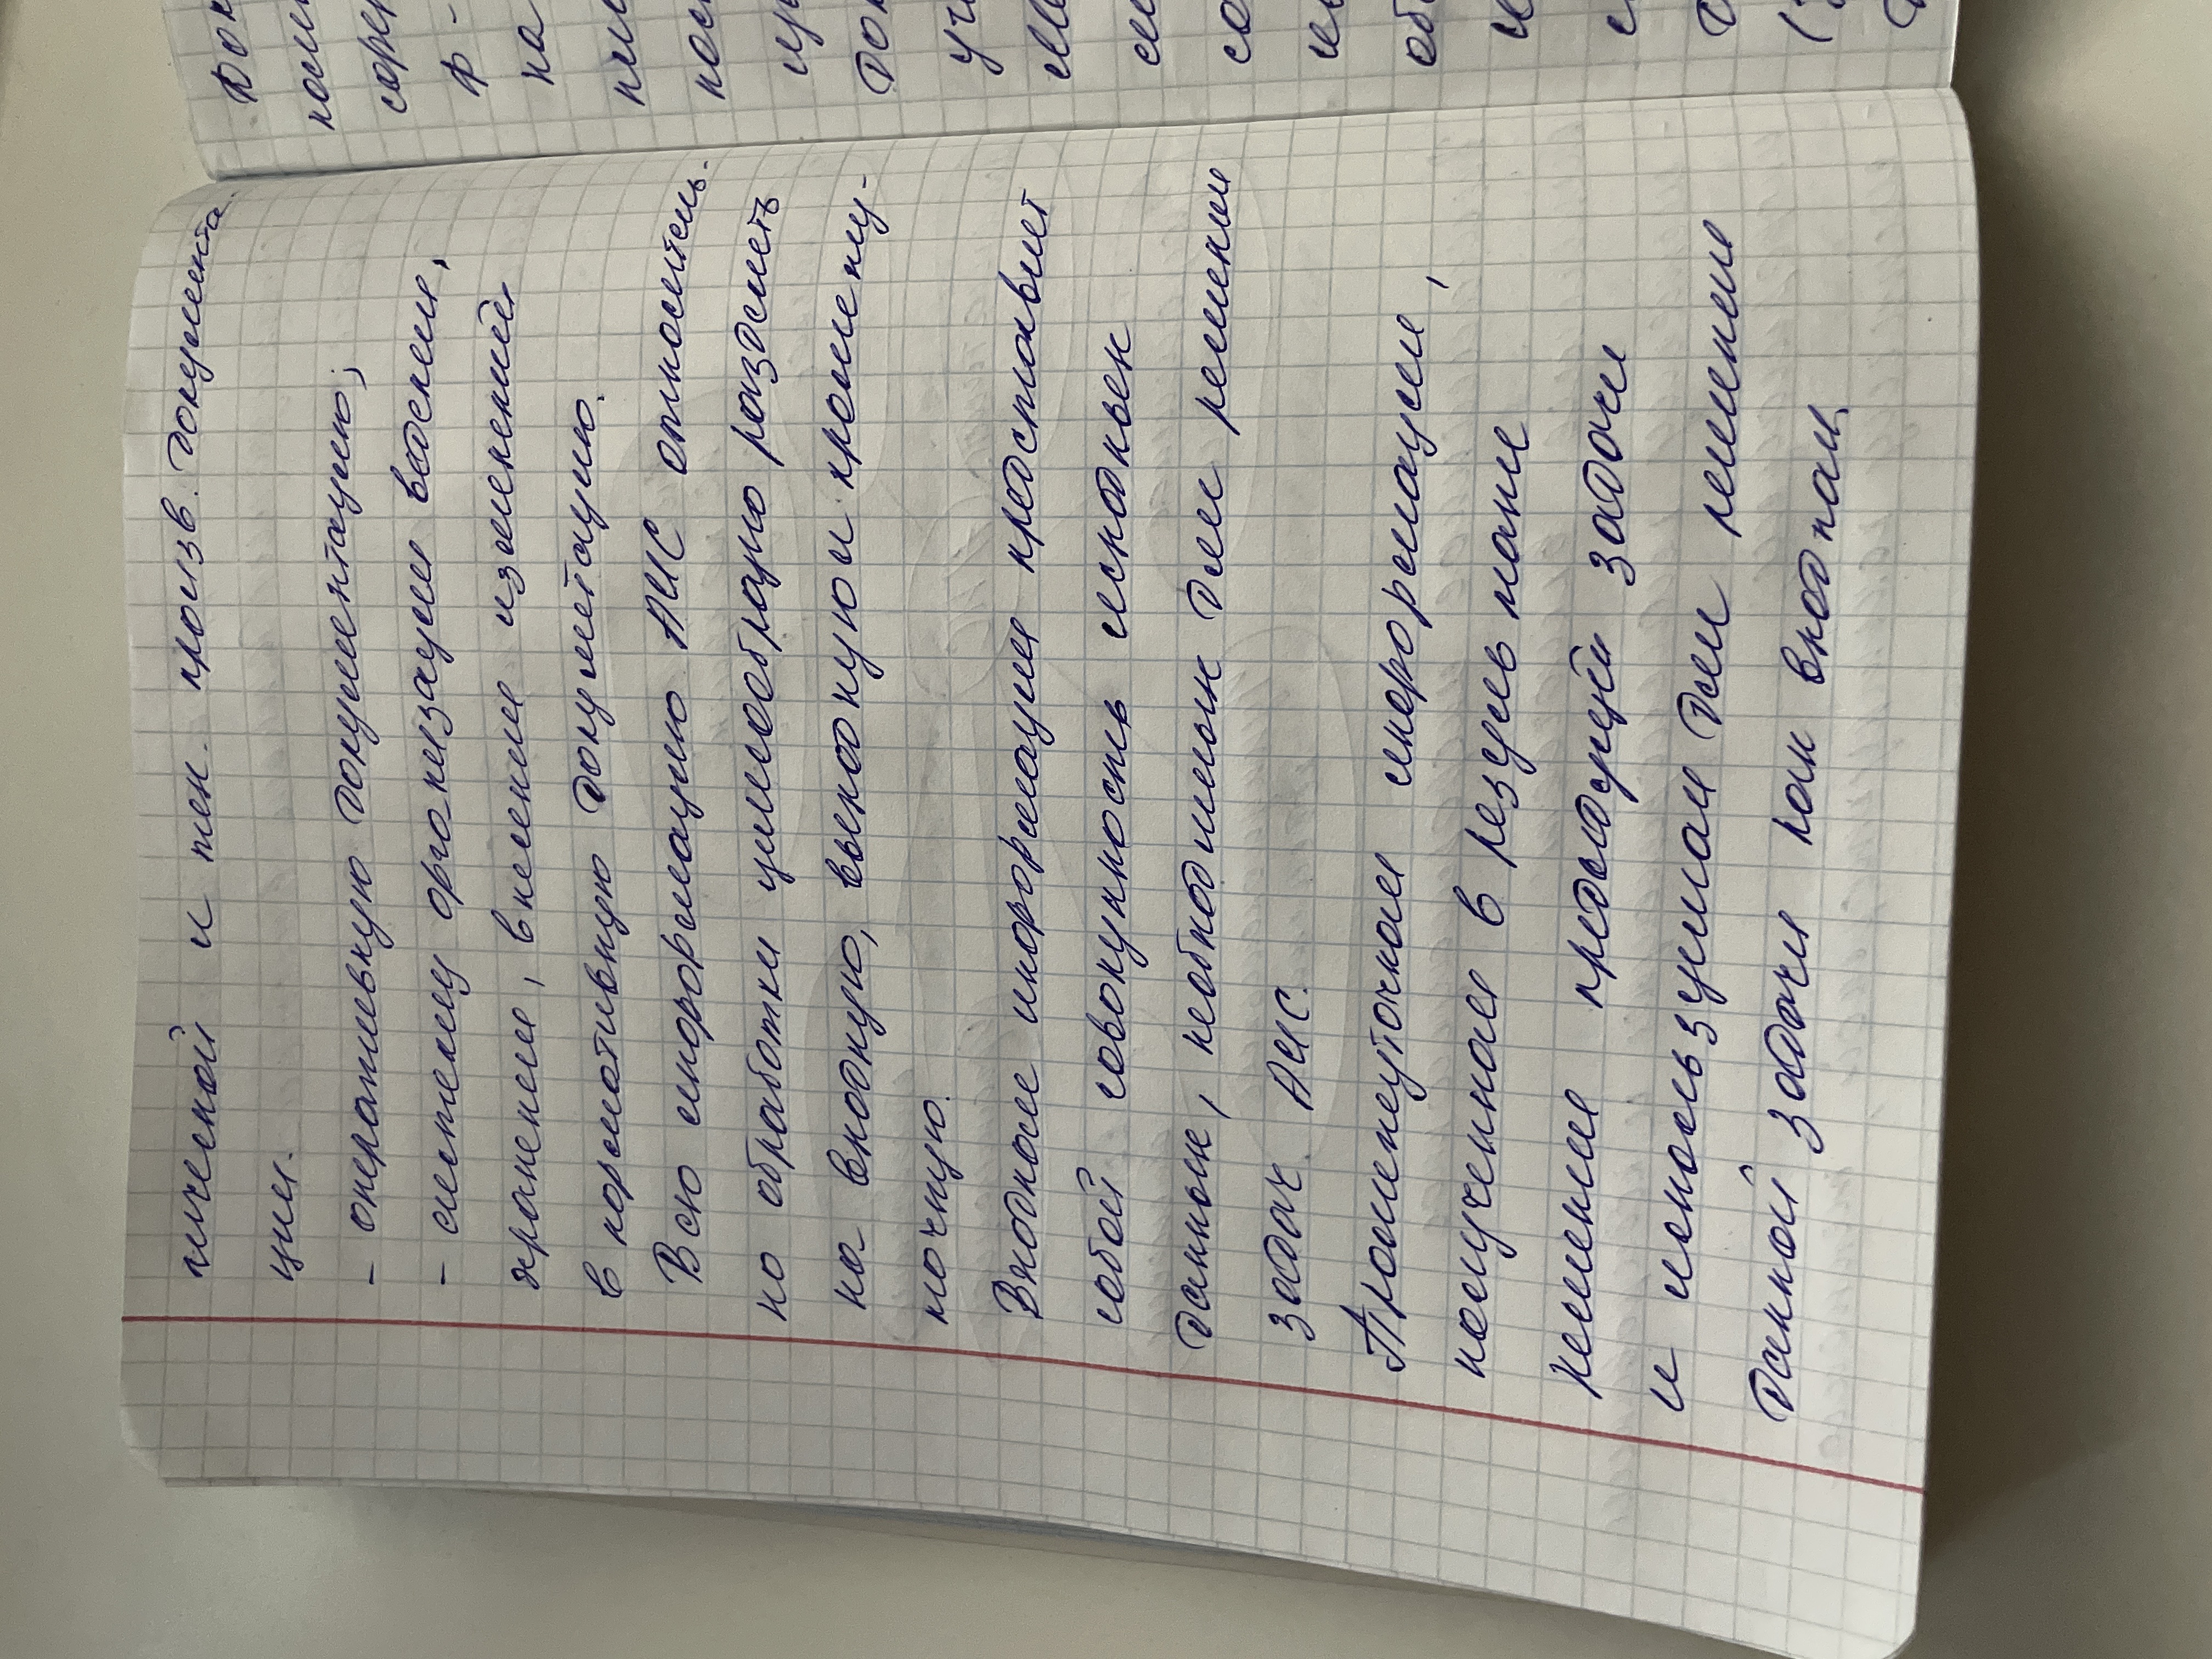 нической и тех. произв. документа.
ции.
- оперативную документацию;
- систему организации ведения,
хранения, внесения изменений
в нормативную документацию.
Всю информацию АИС относитель.
но обработки целесообразно разделить
на входную, выходную и промежу-
точную.
Входная информация представляет
собой совокупность исходных
данных, необходимых для решения
задач АИС.
Промежуточная информация,
полученная в результате
решения предыдущей задачи
и используемая для решения
данной задачи как входная.